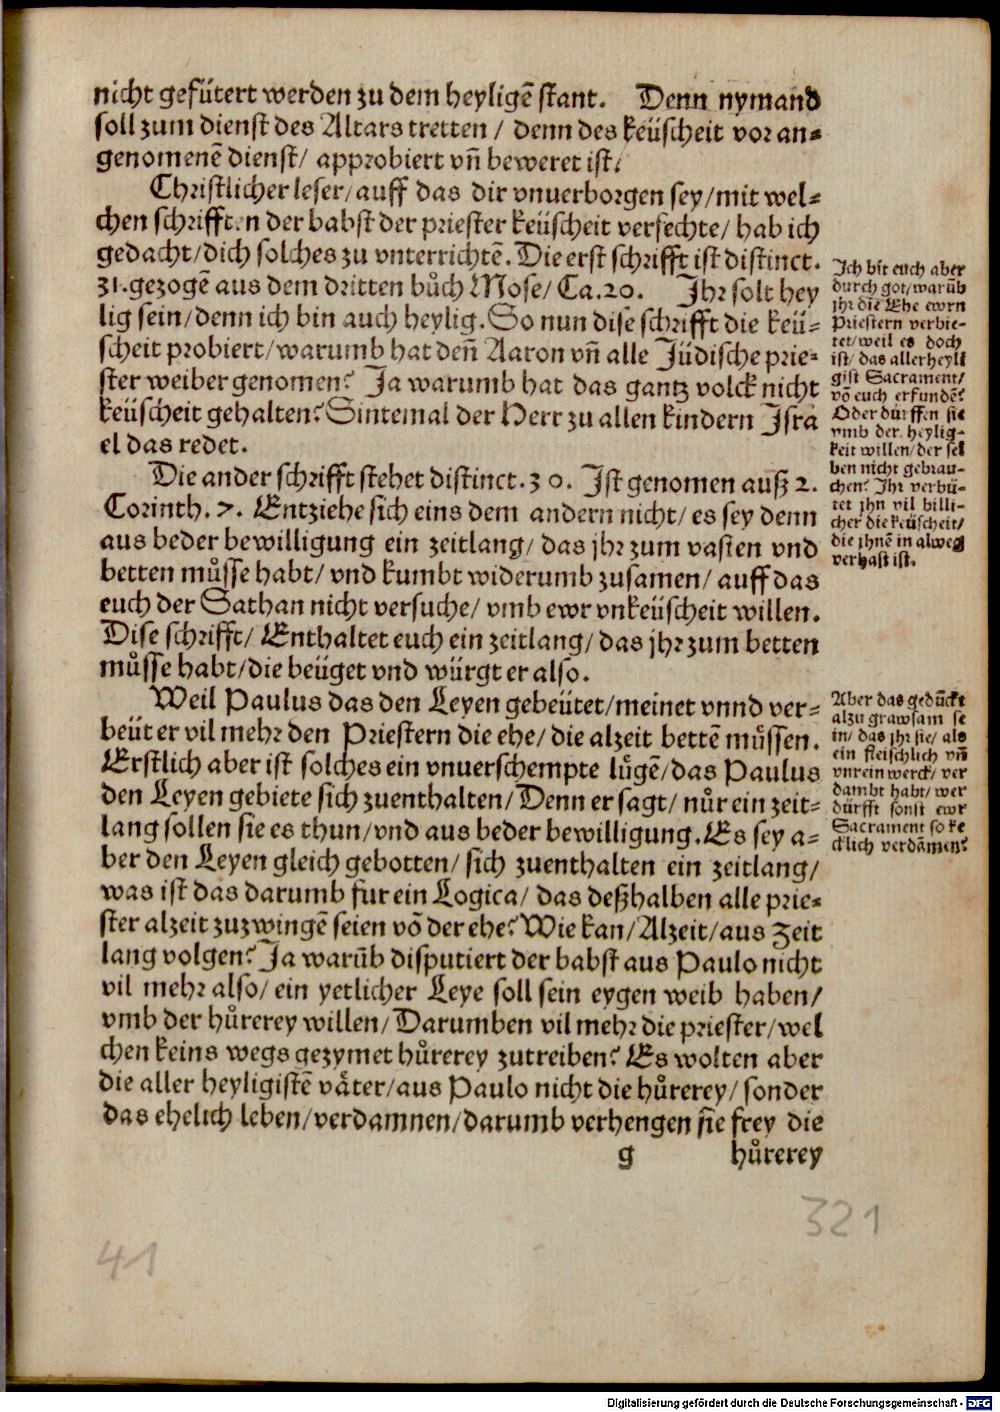 nicht gefütert werden zu dem heyligẽ stant. Denn nymand
soll zum dienst des Altars tretten / denn des keüscheit vor an⸗
genomenẽ dienst/ approbiert vñ beweret ist.
Christlicher leser/ auff das dir vnuerborgen sey/ mit wel⸗
chen schrifften der babst der priester keüscheit versechte/ hab ich
gedacht/ dich solches zu vnterrichtẽ. Die erst schrifft ist distinct.
31. gezogẽ aus dem dritten bůch Mose/ Ca.20. Ihr solt hey
lig sein/ denn ich bin auch heylig. So nun dise schrifft die keü⸗
scheit probiert/ warumb hat deñ Aaron vñ alle Jüdische prie⸗
ster weiber genomen? Ja warumb hat das gantz volck nicht
keüscheit gehalten? Sintemal der Herr zu allen kindern Isra
el das redet.
Die ander schrifft stehet distinct. 30. Ist genomen auß 2.
Corinth. 7. Entziehe sich eins dem andern nicht/ es sey denn
aus beder bewilligung ein zeitlang/ das jhr zum vasten vnd
betten můsse habt/ vnd kumbt widerumb zusamen/ auff das
euch der Sathan nicht versuche/ vmb ewr vnkeüscheit willen.
Dise schrifft/ Enthaltet euch ein zeitlang/ das jhr zum betten
můsse habt/ die beüget vnd würgt er also.
Weil Paulus das den Leyen gebeütet/ meinet vnnd ver⸗
beüt er vil mehr den Priestern die ehe/ die alzeit bettẽ můssen.
Erstlich aber ist solches ein vnuerschempte lůgẽ/ das Paulus
den Leyen gebiete sich zuenthalten/ Denn er sagt/ nůr ein zeit⸗
lang sollen sie es thun/ vnd aus beder bewilligung. Es sey a⸗
ber den Leyen gleich gebotten/ sich zuenthalten ein zeitlang/
was ist das darumb fur ein Logica/ das deßhalben alle prie⸗
ster alzeit zuzwingẽ seien võ der ehe? Wie kan/ Alzeit/ aus Zeit
lang volgen? Ja warũb disputiert der babst aus Paulo nicht
vil mehr also/ ein yetlicher Leye soll sein eygen weib haben/
vmb der hůrerey willen/ Darumben vil mehr die priester/ wel
chen keins wegs gezymet hůrerey zutreiben? Es wolten aber
die aller heyligistẽ våter/ aus Paulo nicht die hůrerey/ sonder
das ehelich leben/ verdamnen/ darumb verhengen sie frey die
g hůrerey
Ich bit euch aber
durch got/ warũb
jhr die Ehe ewrn
Priestern verbie⸗
tet/ weil es doch
ist/ das allerheyli
gist Sacrament/
võ euch erfundẽ?
Oder dürffen sie
vmb der heylig⸗
keit willen/ der sel
ben nicht gebrau⸗
chen? Ihr verbü⸗
tet jhn vil billi⸗
cher die keüscheit/
die jhnẽ in alweg
verhast ist.
Aber das gedũckt
alzu grawsam se
in/ das jhr sie/ als
ein fleischlich vñ
vnrein werck/ ver
dambt habt/ wer
dürfft sonst ewr
Sacrament so ke
cklich verdãmen?
321
41
Digitalisierung gefördert durch die Deutsche Forschungsgemeinschaft - DFG